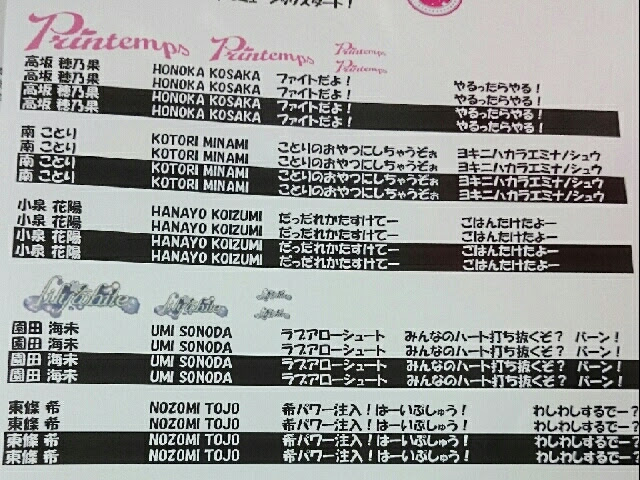 Printemps Printemps Printemps
Printemps
高坂 穂乃果 HONOKA KOSAKA ファイトだよ! やるったらやる!
高坂 穂乃果 HONOKA KOSAKA ファイトだよ! やるったらやる!
高坂 穂乃果 HONOKA KOSAKA ファイトだよ! やるったらやる!
高坂 穂乃果 HONOKA KOSAKA ファイトだよ! やるったらやる!
南 ことり KOTORI MINAMI ことりのおやつにしちゃうぞぉ ヨキニハカラエミナノシュウ
南 ことり KOTORI MINAMI ことりのおやつにしちゃうぞぉ ヨキニハカラエミナノシュウ
南 ことり KOTORI MINAMI ことりのおやつにしちゃうぞぉ ヨキニハカラエミナノシュウ
南 ことり KOTORI MINAMI ことりのおやつにしちゃうぞぉ ヨキニハカラエミナノシュウ
小泉 花陽 HANAYO KOIZUMI だっだれかたすけてー ごはんたけたよー
小泉 花陽 HANAYO KOIZUMI だっだれかたすけてー ごはんたけたよー
小泉 花陽 HANAYO KOIZUMI だっだれかたすけてー ごはんたけたよー
小泉 花陽 HANAYO KOIZUMI だっだれかたすけてー ごはんたけたよー
園田 海未 UMI SONODA ラブアローシュート みんなのハート打ち抜くぞ? バーン!
園田 海未 UMI SONODA ラブアローシュート みんなのハート打ち抜くぞ? バーン!
園田 海未 UMI SONODA ラブアローシュート みんなのハート打ち抜くぞ? バーン!
園田 海未 UMI SONODA ラブアローシュート みんなのハート打ち抜くぞ? バーン!
東條 希 NOZOMI TOJO 希パワー注入!はーいぷしゅう! わしわしするでー?
東條 希 NOZOMI TOJO 希パワー注入!はーいぷしゅう! わしわしするでー?
東條 希 NOZOMI TOJO 希パワー注入!はーいぷしゅう! わしわしするでー?
東條 希 NOZOMI TOJO 希パワー注入!はーいぷしゅう! わしわしするでー?